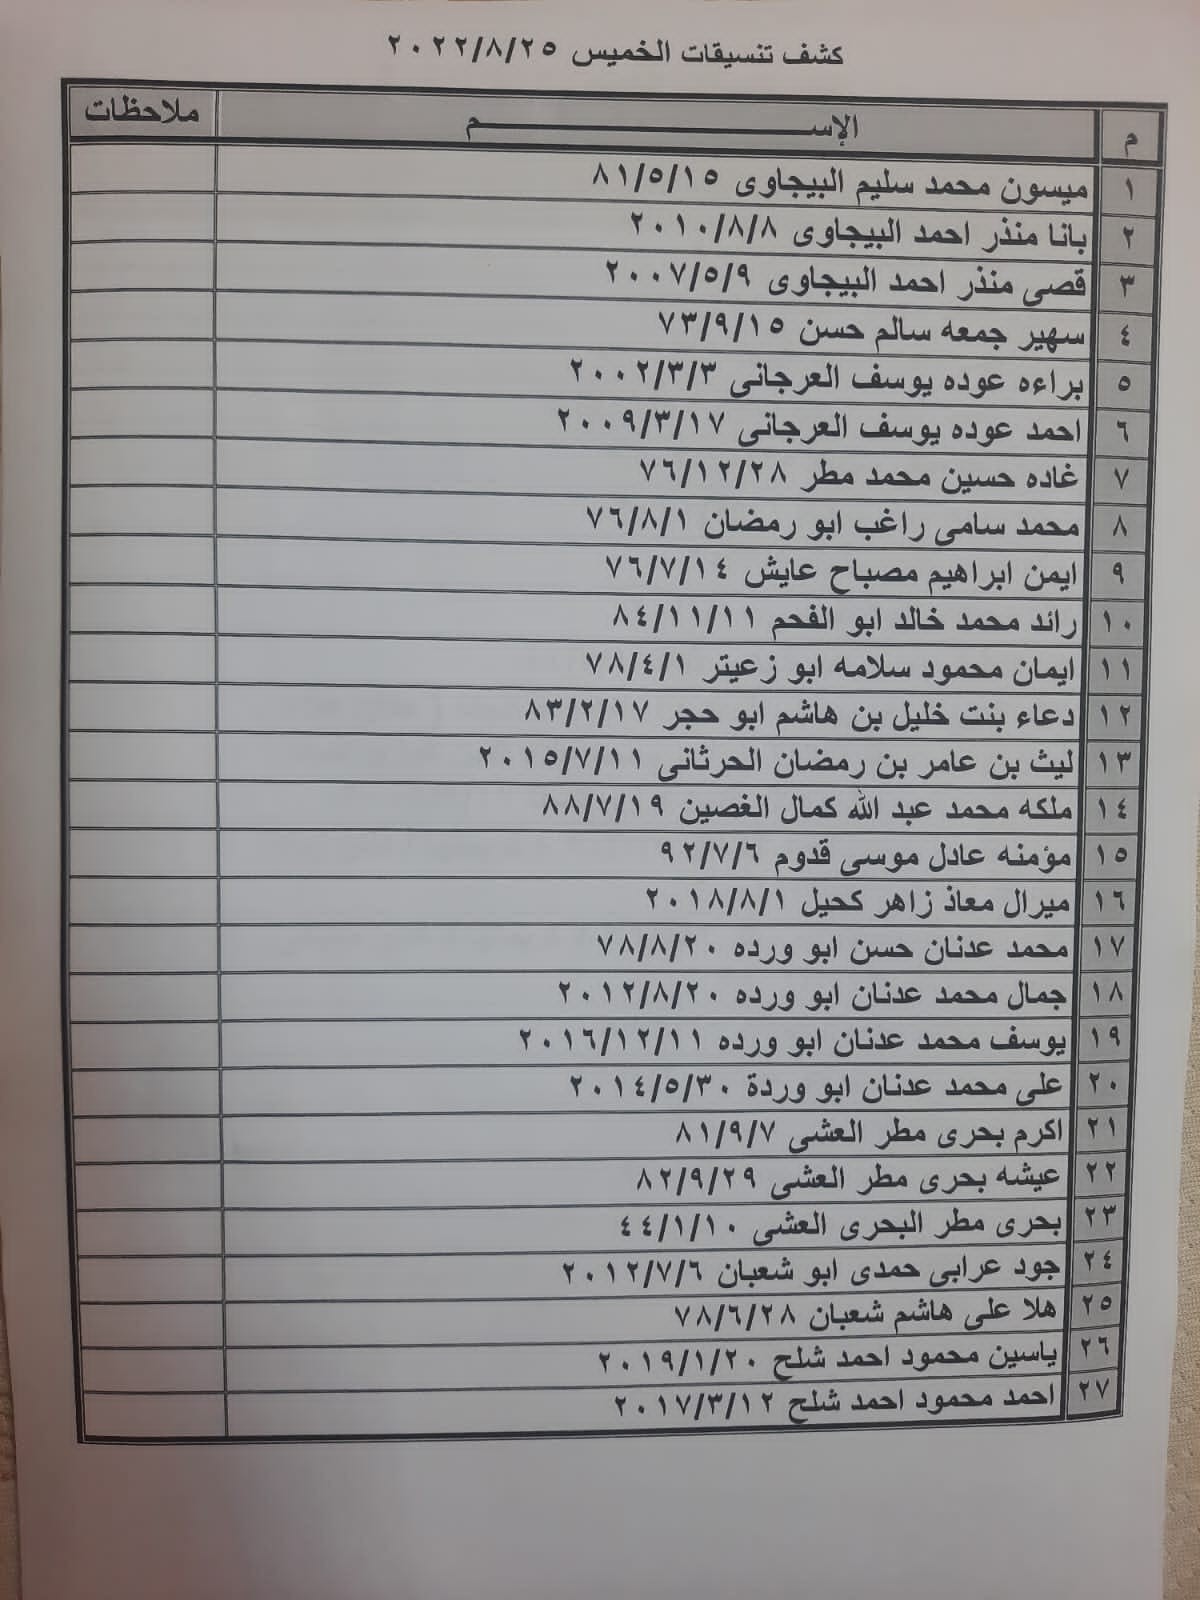 كشف تنسيقات الخميس ٢٠٢٢/٨/٢٥
م الإســـــــــــــــم ملاحظات
١ ميسون محمد سليم البيجاوى ٨١/٥/١٥
٢ بانا منذر احمد البيجاوى ٢٠١٠/٨/٨
٣ قصى منذر احمد البيجاوى ٢٠٠٧/٥/٩
٤ سهير جمعه سالم حسن ٧٣/٩/١٥
٥ براءه عوده يوسف العرجانى ٢٠٠٢/٣/٣
٦ احمد عوده يوسف العرجانى ٢٠٠٩/٣/١٧
٧ غاده حسين محمد مطر ٧٦/١٢/٢٨
٨ محمد سامى راغب ابو رمضان ٧٦/٨/١
٩ ايمن ابراهيم مصباح عايش ٧٦/٧/١٤
١٠ رائد محمد خالد ابو الفحم ٨٤/١١/١١
١١ ايمان محمود سلامه ابو زعيتر ٧٨/٤/١
١٢ دعاء بنت خليل بن هاشم ابو حجر ٨٣/٢/١٧
١٣ ليث بن عامر بن رمضان الحرثانى ٢٠١٥/٧/١١
١٤ ملكه محمد عبد الله كمال الغصين ٨٨/٧/١٩
١٥ مؤمنه عادل موسى قدوم ٩٢/٧/٦
١٦ ميرال معاذ زاهر كحيل ٢٠١٨/٨/١
١٧ محمد عدنان حسن ابو ورده ٧٨/٨/٢٠
١٨ جمال محمد عدنان ابو ورده ٢٠١٢/٨/٢٠
١٩ يوسف محمد عدنان ابو ورده ٢٠١٦/١٢/١١
٢٠ على محمد عدنان ابو وردة ٢٠١٤/٥/٣٠
٢١ اكرم بحرى مطر العشى ٨١/٩/٧
٢٢ عيشه بحرى مطر العشى ٨٢/٩/٢٩
٢٣ بحرى مطر البحرى العشى ٤٤/١/١٠
٢٤ جود عرابى حمدى ابو شعبان ٢٠١٢/٧/٦
٢٥ هلا على هاشم شعبان ٧٨/٦/٢٨
٢٦ ياسين محمود احمد شلح ٢٠١٩/١/٢٠
٢٧ احمد محمود احمد شلح ٢٠١٧/٣/١٢